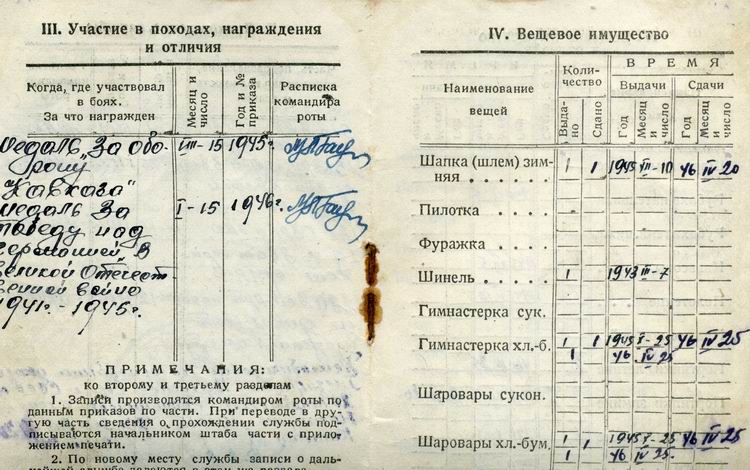 III. Участие в походах, награждения
и отличия
Когда, где участвовал
в боях.
За что награжден
Месяц и
число
Год и №
приказа
Расписка
командира
роты
Медаль "За обо-
рону
Кавказа"
VIII-15 1945г.
Медаль За
победу над
Германией" в
великой Отечест
венной войне
1941г.-1945г.
I-15 1946г.
ПРИМЕЧАНИЯ:
ко второму и третьему разделам
1. Записи производятся командиром роты по
данным приказов по части. При переводе в дру-
гую часть сведения о прохождении службы под-
писываются начальником штаба части с прило-
жением печати.
2. По новому месту службы записи о даль-
IV. Вещевое имущество
Наименование
вещей
Коли-
чество
Выда-
но
Сдано
ВРЕМЯ
Выдачи
Сдачи
Год
Месяц
и
число
Год
Месяц
и
число
Шапка (шлем) зим-
няя . . . . . 1 1 1945 III-10 46 IV 20
Пилотка . . . .
Фуражка . . . .
Шинель . . . . 1 1943 III-7
Гимнастерка сук.
Гимнастерка хл.-б. 1 1 1945 X-25 46 IV 25
1 46 IV 25
Шаровары сукон.
Шаровары хл.-бум. 1 1 1945 X-25 46 IV 25
1 46 IV 25.